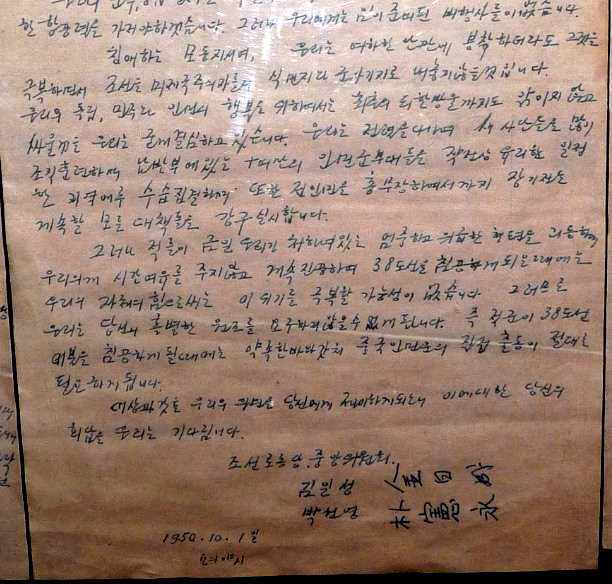 한 항공력을 가져야하겠습니다. 그러나 우리에게는 이미 준비된 비행사들이 없습니다.
친애하는 모동지시여, 우리는 여하한 난관에 봉착하더라도 그것을
극복하면서 조선을 미제국주의자들의 식민지와 군사기지로 내주지않을것입니다.
우리의 독립, 민주와 인민의 행복을 위하여서는 최후의 피한방울까지도 아끼지 않고
싸울것을 우리는 굳게 결심하고 있습니다. 우리는 전력을 다하여 새 사단들을 많이
조직훈련하며 남반부에 있는 十여만의 인민군부대들을 작전상 유리한 일정
한 지역에로 수습집결하며 또한 전인민을 총무장하여서까지 장기전을
계속할 모든 대책들을 강구실시합니다.
그러나 적들이 금일 우리가 처하여있는 엄중하고 위급한 형편을 리용하여
우리에게 시간여유를 주지않고 계속진공하여 38도선을 침공하게 되는때에는
우리의 자체의 힘으로써는 이 위기를 극복할 가능성이 없습니다. 그러므로
우리는 당신의 특별한 원조를 요구하지않을수 없게 됩니다. 즉 적군이 38도선
이북을 침공하게 될때에는 약속한바와같이 중국인민군의 직접 출동이 절대로
필요하게 됩니다.
이상과같은 우리의 의견을 당신에게 제의하게되니 이에대한 당신의
회답을 우리는 기다립니다.
조선로동당 중앙위원회.
김일성 金日成
박헌영 朴憲永
1950.10.1일